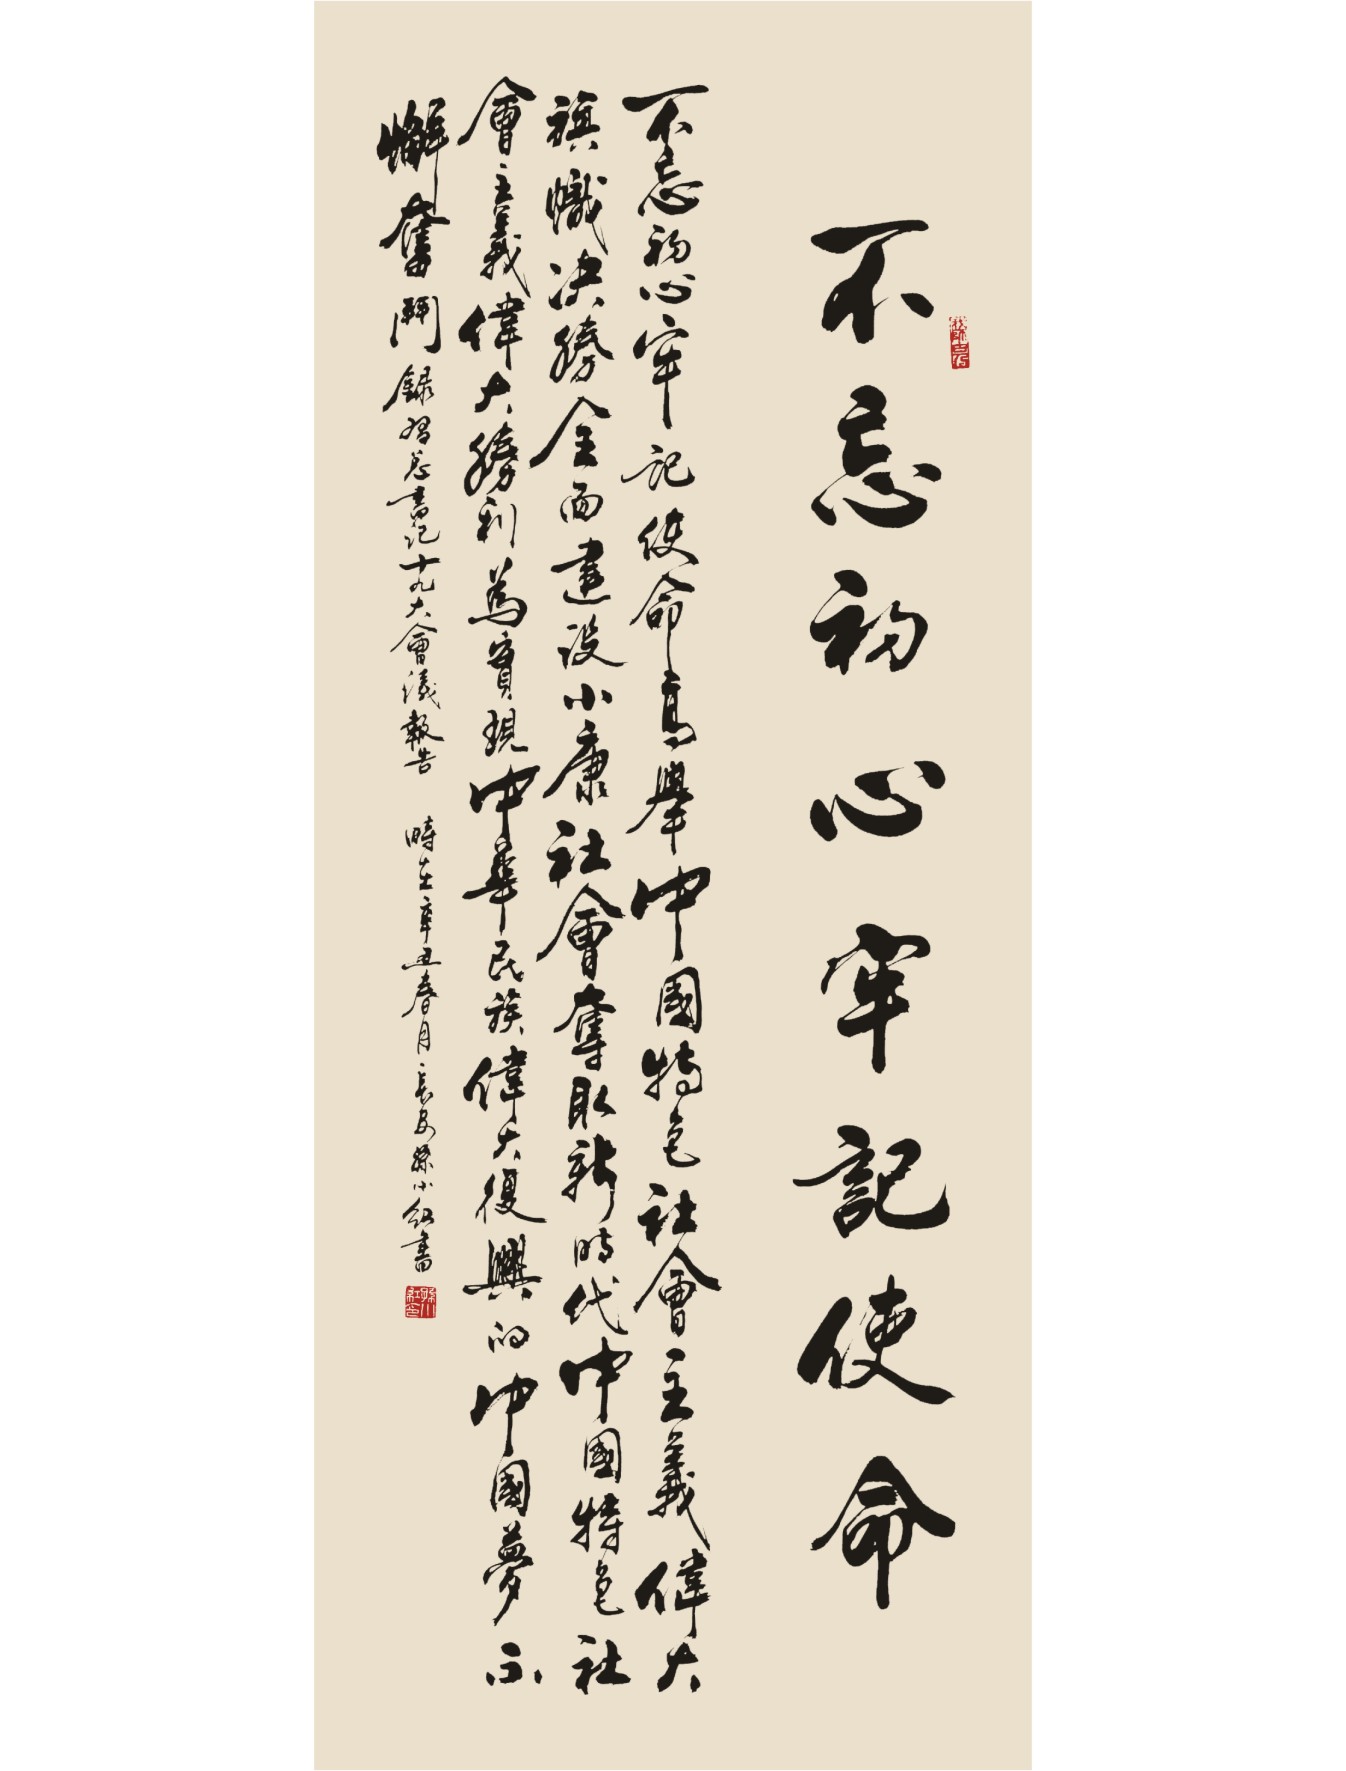 不忘初心牢記使命
不忘初心牢記使命高舉中國特色社會主義偉大
旗幟決勝全面建設小康社會奪取新時代中國特色社
會主義偉大勝利為實現中華民族偉大復興的中國夢不
懈奮鬥 錄習總書記十九大會議報告 時在辛丑春月長安孫小紅書